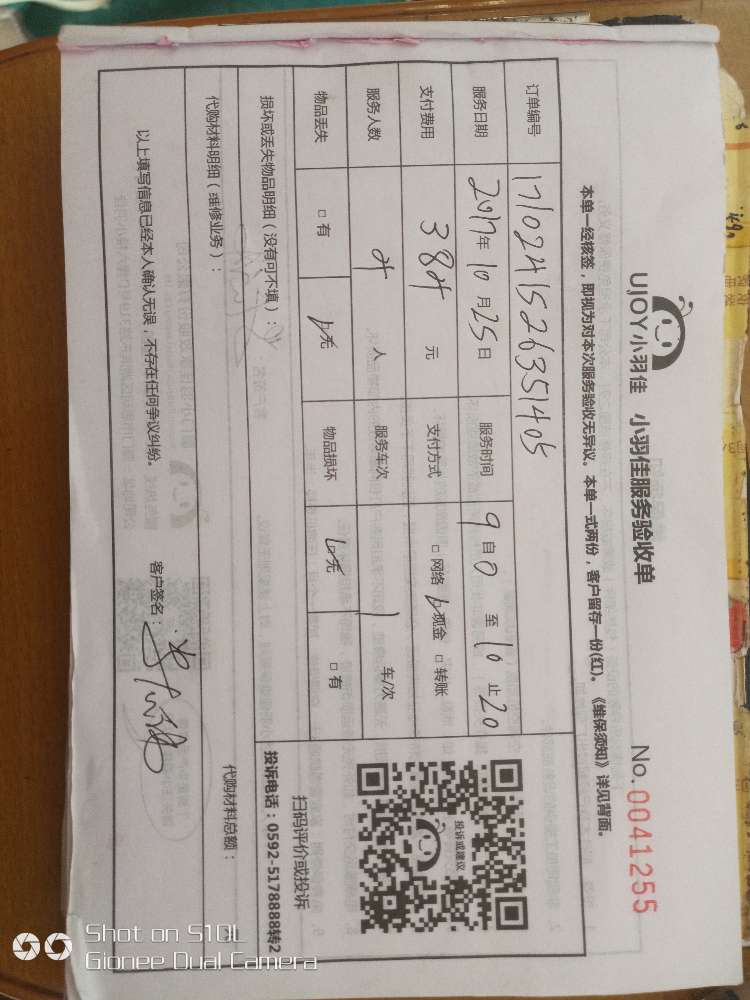 UJOY小羽佳 小羽佳服务验收单 No.0041255
本单一经核签，即视为对本次服务验收无异议。本单一式两份，客户留存一份(红)。《维保须知》详见背面。
订单编号 1710241526351405
服务日期 2017年10月25日 服务时间 9 自0 至 10 止20
支付费用 384 元 支付方式 □ 网络 □ 现金 □ 转账
服务人数 4 人 服务车次 1 车/次
物品丢失 □ 有 □ 无 物品损坏 □ 无 □ 有
投诉或建议
扫码评价或投诉
投诉电话：0592-5178888转2
损坏或丢失物品明细（没有可不填）：
代购材料明细（维修业务）： 代购材料总额： 元
以上填写信息已经本人确认无误，不存在任何争议纠纷。 客户签名：
Shot on S10L
Gionee Dual Camera